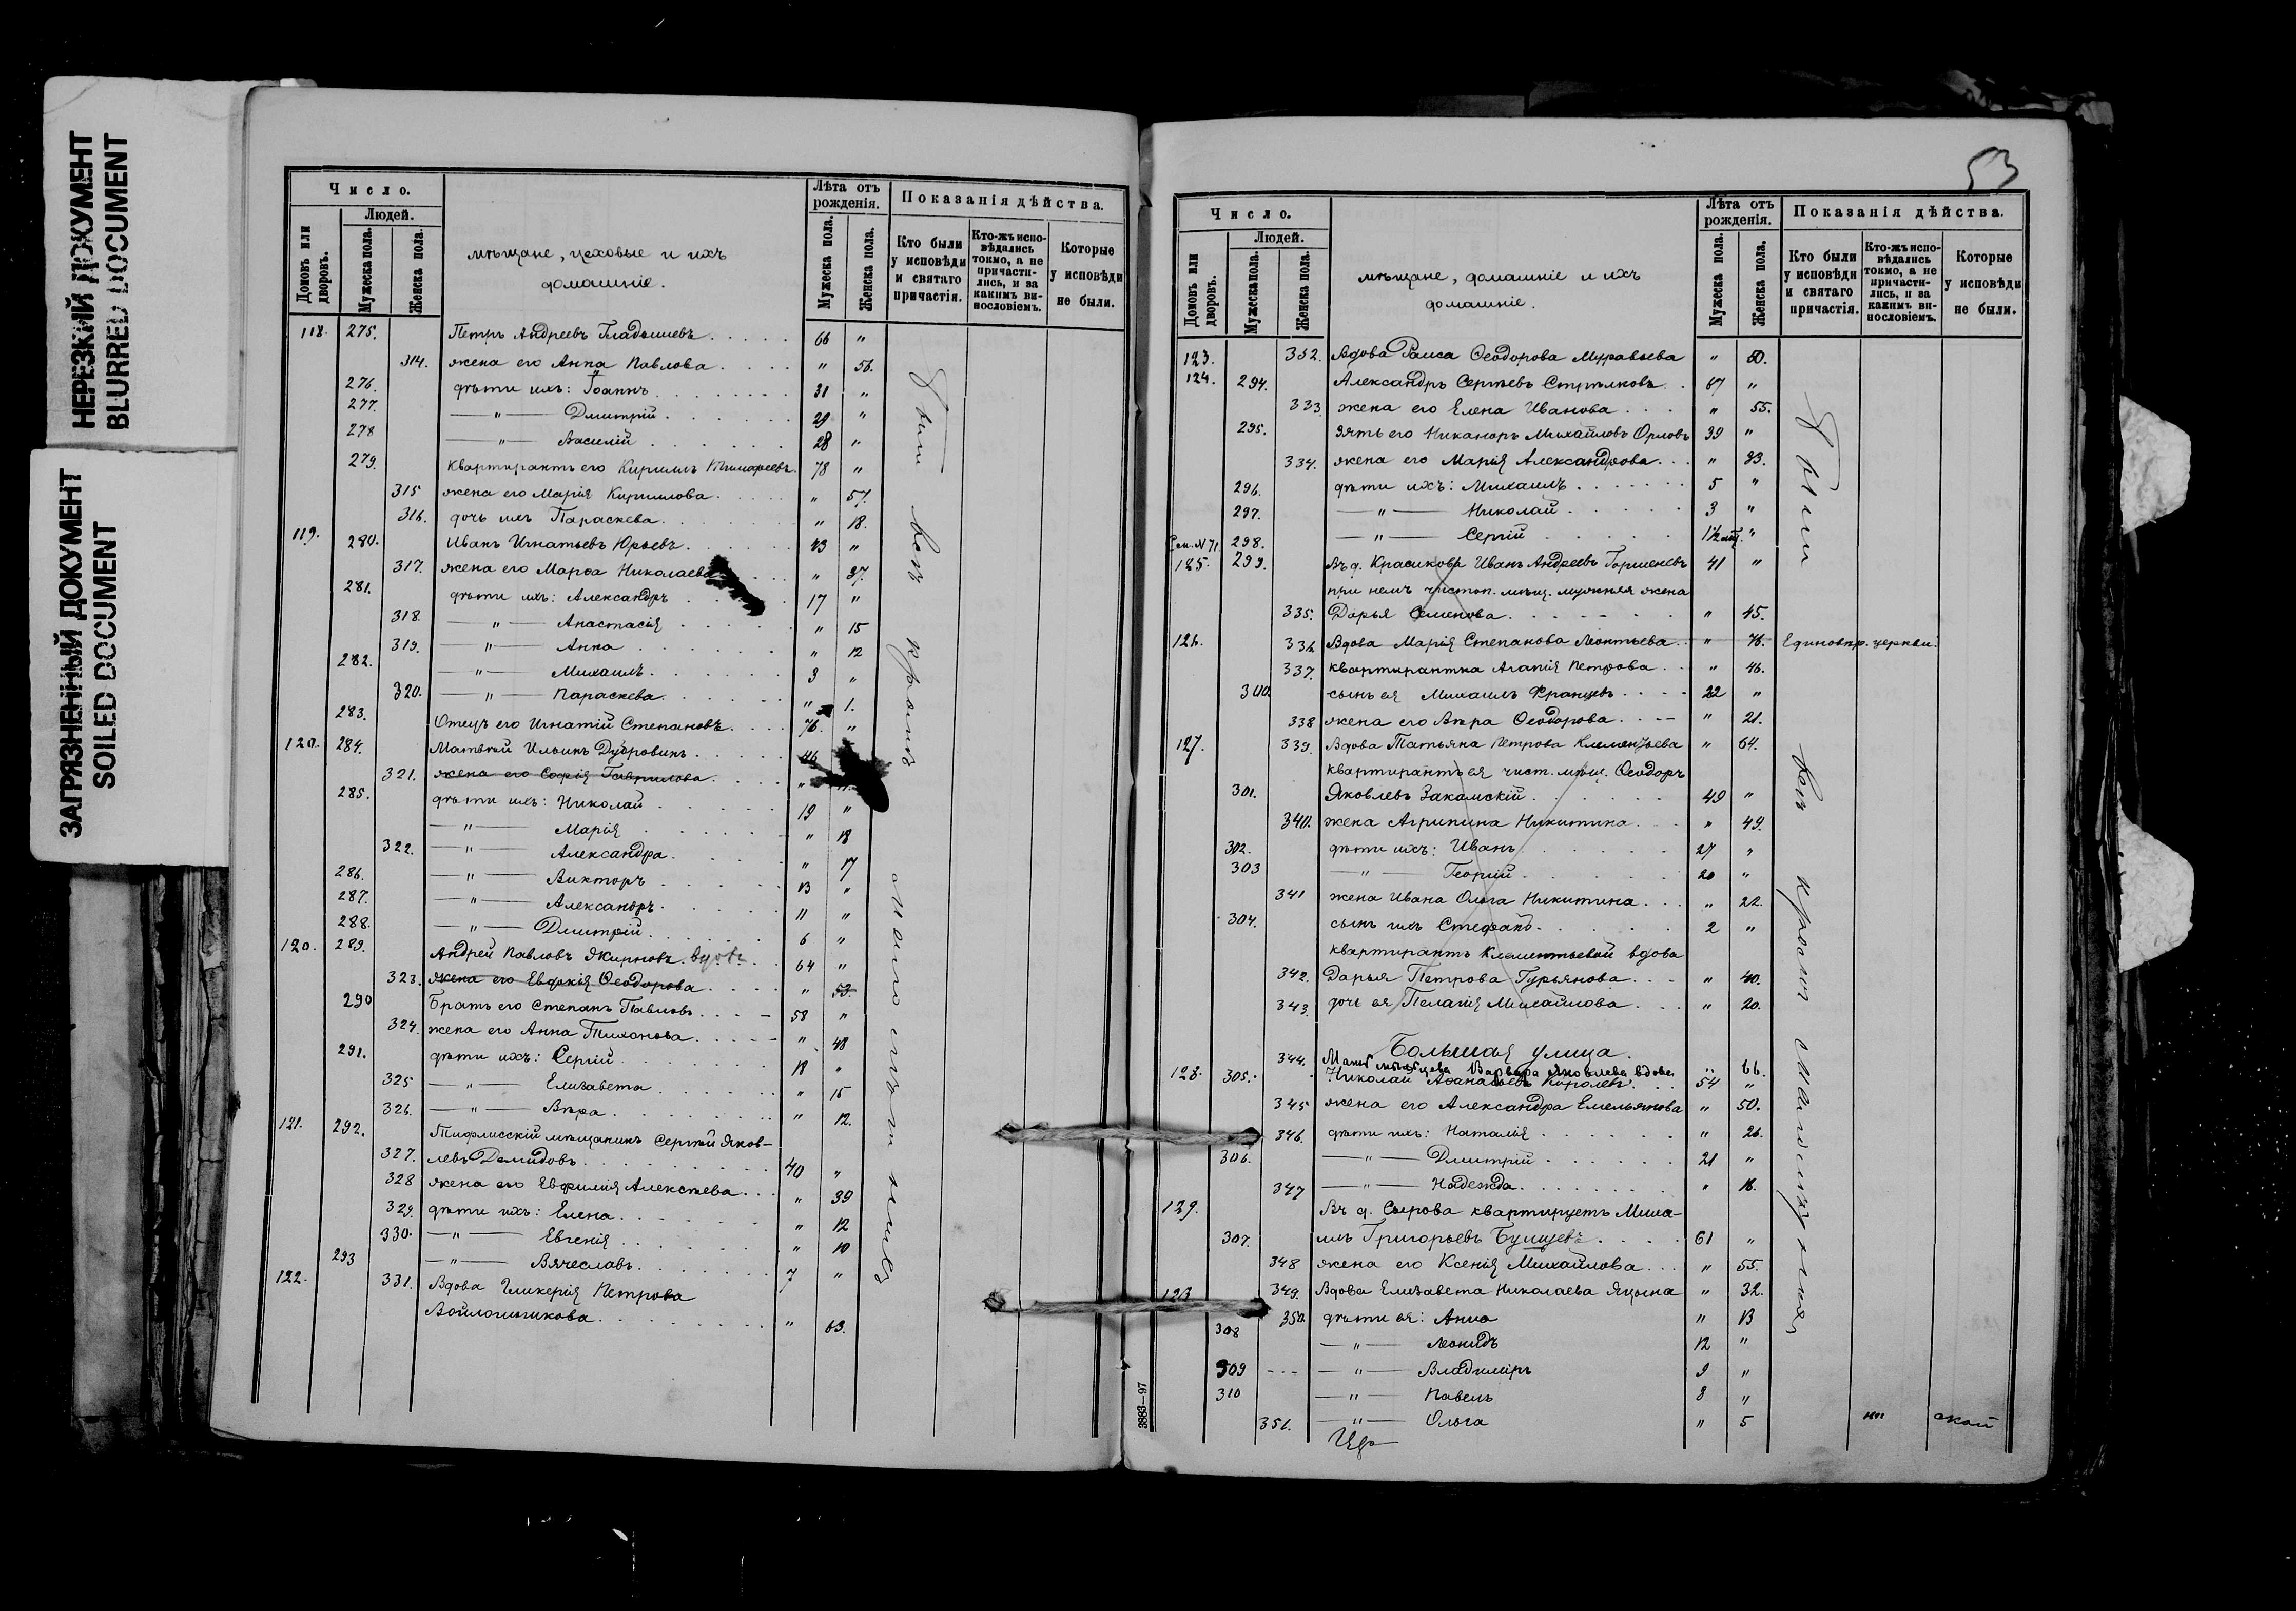 НЕРЕЗКИЙ ДОКУМЕНТ
BLURRED DOCUMENT
ЗАГРЯЗНЕННЫЙ ДОКУМЕНТ
SOILED DOCUMENT
Число.
Людей.
Домовъ или дворовъ.
Мужеска пола.
Женска пола.
мѣщане, цеховые и ихъ
домашніе.
Лѣта отъ рожденія.
Мужеска пола.
Женска пола.
Показанія дѣйства.
Кто были у исповѣди и святаго причастія.
Кто-жъ исповѣдались токмо, а не причастились, и за какимъ винословіемъ.
Которые у исповѣди не были.
118. 275. Петръ Андреевъ Гладышевъ 66 "
314. жена его Анна Павлова " 56.
276. дѣти ихъ: Іоаннъ 31 "
277. —"— Дмитрій 29 "
278 —"— Василій 28 "
279. квартирантъ его Кириллъ Тимофеевъ 78 "
315 жена его Марія Кириллова " 57.
316. дочь ихъ Параскева " 18.
119. 280. Иванъ Игнатьевъ Юрьевъ 43 "
317. жена его Марѳа Николаева " 37.
281. дѣти ихъ: Александръ 17 "
318. —"— Анастасія " 15
319. —"— Анна " 12
282. —"— Михаилъ 3 "
320. —"— Параскева " 1.
283. Отецъ его Игнатій Степановъ 76. "
120. 284. Матвѣй Ильинъ Дубровинъ 46
321. жена его Софія Гаврилова "
285. дѣти ихъ: Николай 19 "
—"— Марія " 18
322. —"— Александра " 17
286. —"— Викторъ 13 "
287. —"— Александръ 11 "
288. —"— Дмитрій 6 "
120. 289. Андрей Павловъ Жирновъ. вдовъ 64 "
323. жена его Евдокія Ѳеодорова " 53
290 Братъ его Степанъ Павловъ 58 "
324. жена его Анна Тихонова " 48
291. дѣти ихъ: Сергій 18 "
325 —"— Елизавета " 15
326. —"— Вѣра " 12.
121. 292. Тифлисскій мѣщанинъ Сергѣй Яков-
327. левъ Демидовъ 40 "
328 жена его Евфимія Алексѣева " 39
329. дѣти ихъ: Елена " 12
330. —"— Евгенія " 10
293 —"— Вячеславъ 7 "
122. 331. Вдова Гликерія Петрова
Войлошникова " 63.
Были всѣ кромѣ малолѣтнихъ
53
Число.
Людей.
Домовъ или дворовъ.
Мужеска пола.
Женска пола.
мѣщане, домашніе и ихъ
домашніе.
Лѣта отъ рожденія.
Мужеска пола.
Женска пола.
Показанія дѣйства.
Кто были у исповѣди и святаго причастія.
Кто-жъ исповѣдались токмо, а не причастились, и за какимъ винословіемъ.
Которые у исповѣди не были.
123. 332. Вдова Раиса Ѳеодорова Муравьева " 60.
124. 294. Александръ Сергѣевъ Стрѣлковъ 67 "
333. жена его Елена Иванова " 55.
295. зять его Никаноръ Михайловъ Орловъ 39 "
334. жена его Марія Александрова " 33.
296. дѣти ихъ: Михаилъ 5 "
297. —"— Николай 3 "
См. № 71 298. —"— Сергій 1½ "
125. 299. Въ д. Красикова Иванъ Андреевъ Горшеневъ 41 "
при немъ чистоп. мѣщ. мужняя жена
335. Дарья Семенова " 45.
126. 336 Вдова Марія Степанова Леонтьева " 76. Единовѣр. церкви.
337. квартирантка Агапія Петрова " 46.
300. сынъ ея Михаилъ Францевъ 22 "
338 жена его Вѣра Ѳеодорова " 21.
127. 339. Вдова Татьяна Петрова Клементьева " 64.
квартирантъ ея чист. мѣщ. Ѳеодоръ
301. Яковлевъ Закамскій 49 "
340. жена Агрипина Никитина " 49.
302. дѣти ихъ: Иванъ 27 "
303 —"— Георгій 20 "
341 жена Ивана Ольга Никитина " 22.
304. сынъ ихъ Стефанъ 2 "
квартирантъ Клементьевой вдова
342. Дарья Петрова Гурьянова " 40.
343. дочь ея Пелагія Михайлова " 20.
Большая улица.
344. Варвара Яковлева вдова " 66.
128. 305. Николай Аѳанасьевъ Королевъ 54 "
345 жена его Александра Емельянова " 50.
346. дѣти ихъ: Наталія " 26.
306. —"— Дмитрій 21 "
347 —"— Надежда " 18.
129. Въ д. Сырова квартируетъ Миха-
307. илъ Григорьевъ 61 "
348 жена его Ксенія Михайлова " 55.
123 349. Вдова Елизавета Николаева Яцына " 32.
350. дѣти ея: Анна " 13
308 —"— Леонидъ 12 "
309 —"— Владиміръ 9 "
310 —"— Павелъ 8 "
351. —"— Ольга " 5
Были всѣ кромѣ малолѣтнихъ
3883—97